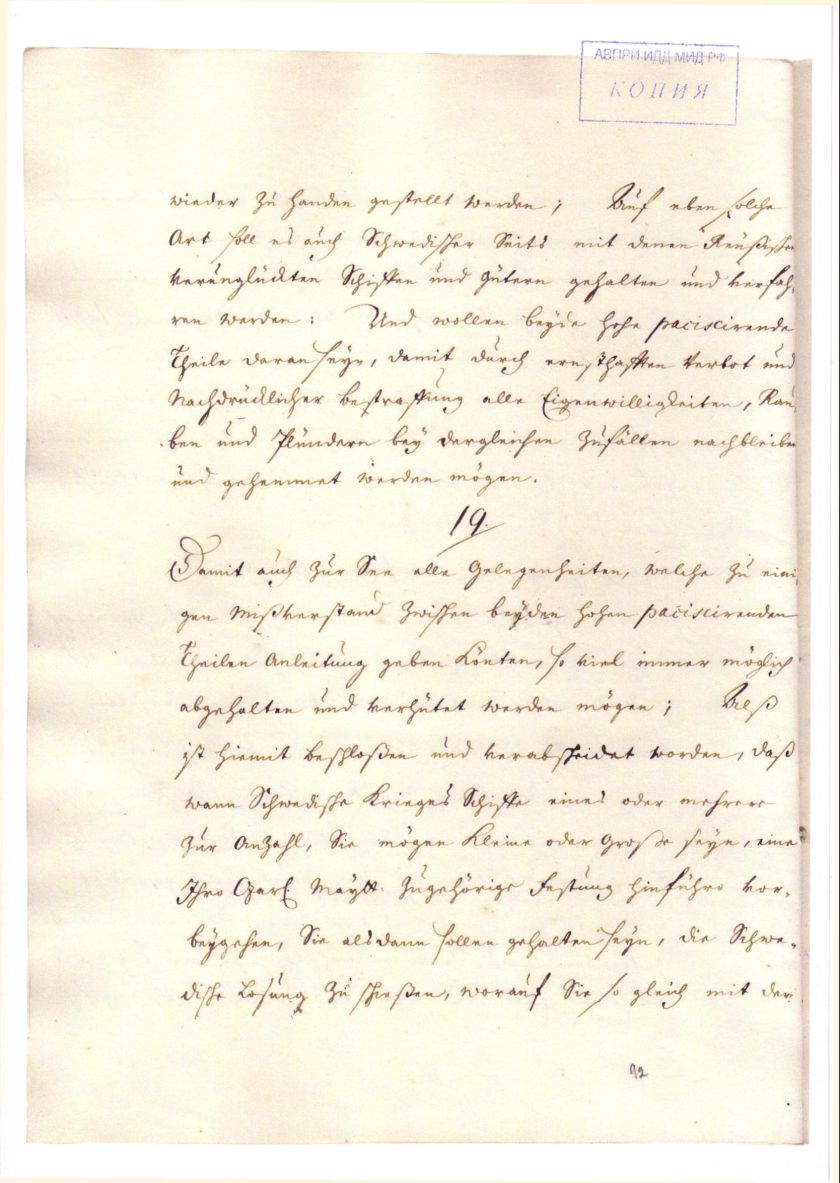 АВПРИ ИДД МИД РФ
КОПИЯ
wieder zu Handen gestellt werden; Auf eben solche
Art soll es auch Schwedischer Seits mit denen Reußischen
verunglückten Schiffen und Gütern gehalten und verfah-
ren werden: Und wollen beyde hohe paciscirende
Theile daran seyn, damit durch ernsthafften Verbot und
Nachdrücklicher Bestraffung alle Eigenwilligkeiten, Rau-
ben und Plündern bey dergleichen Zufällen nachbleiben
und gehemmet werden mögen.
19.
Damit auch zur See alle Gelegenheiten, welche zu eini-
gen Mißverstand zwischen beyden hohen paciscirenden
Theilen Anleitung geben könten, so viel immer möglich
abgehalten und verhütet werden mögen; Alß
ist hiemit beschloßen und verabscheidet worden, daß
wann Schwedische Krieges Schiffe eines oder mehrere
zur Anzahl, Sie mögen Kleine oder Große seyn, eine
Ihro Czarl. Maytt. zugehörige Festung hinführo vor-
beygehen, Sie alsdann sollen gehalten seyn, die Schwe-
dische Losung zu schießen, worauf Sie so gleich mit der
92